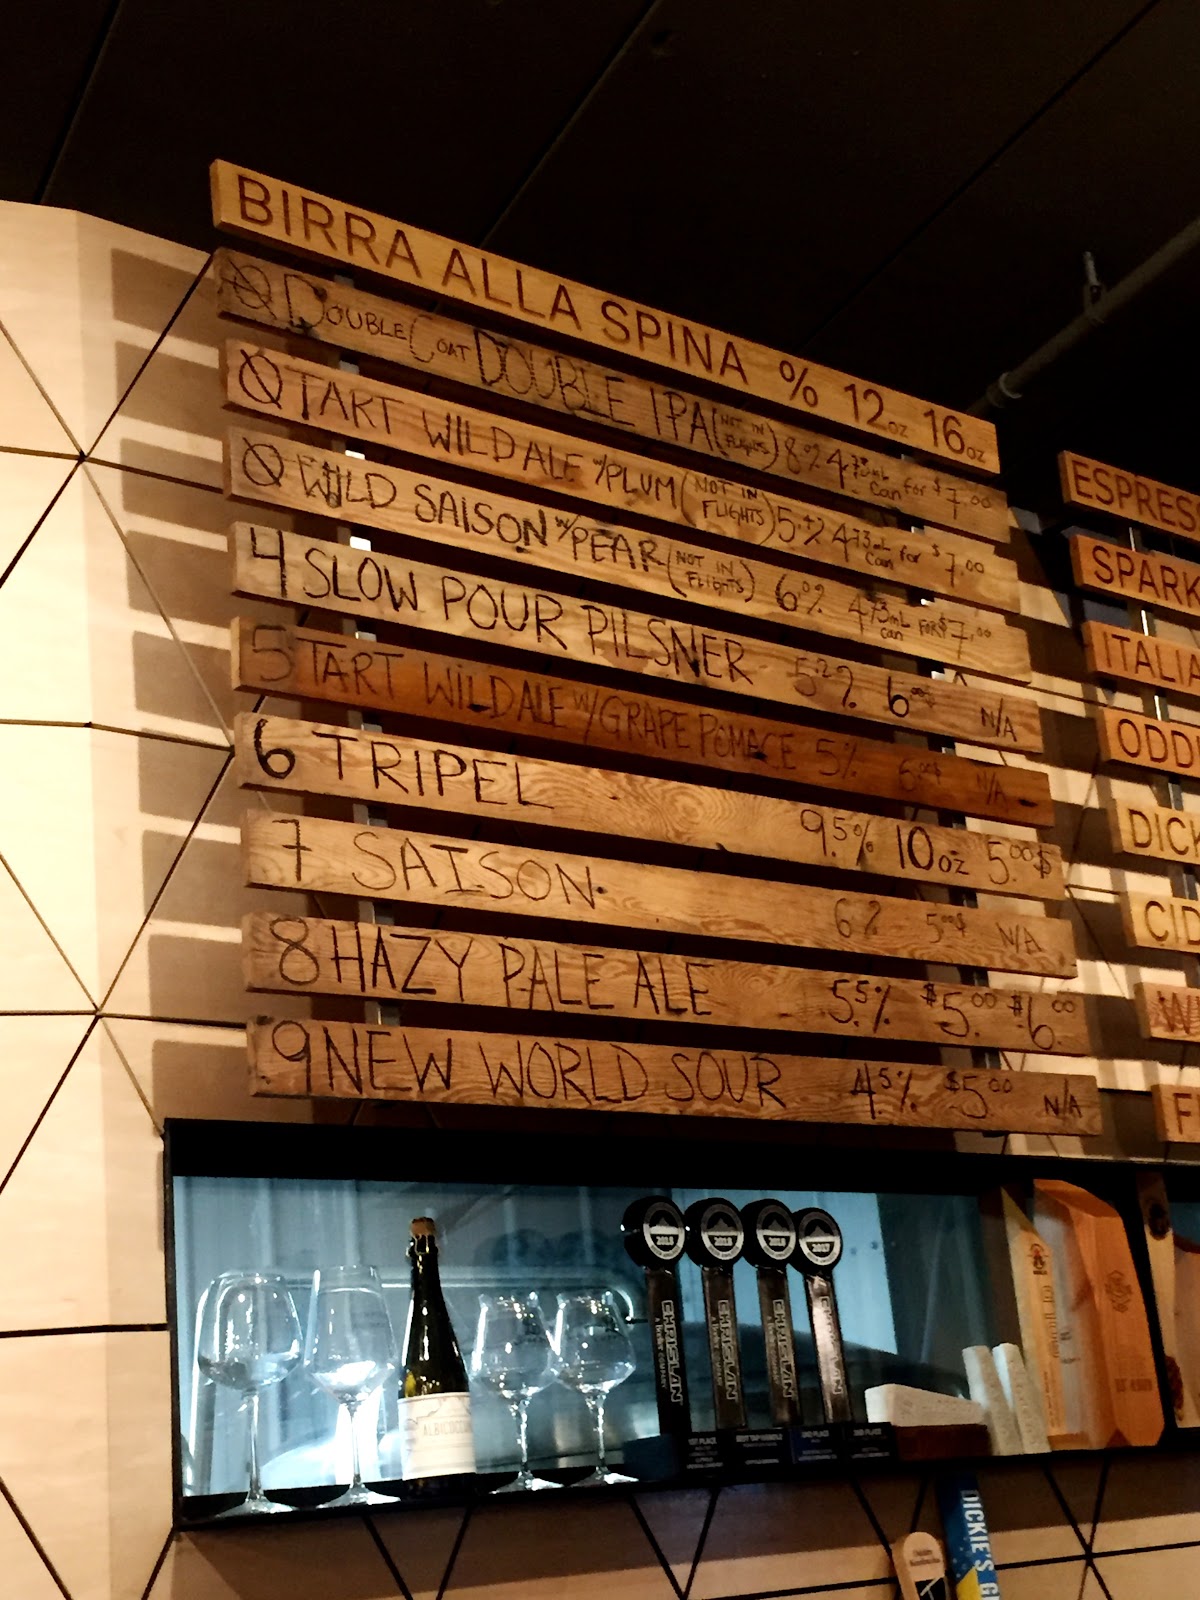 BIRRA ALLA SPINA % 12oz 16oz
DOUBLE COAT DOUBLE IPA (NOT IN FLIGHTS) 8% 473mL Can for $7.00
TART WILD ALE w/PLUM (NOT IN FLIGHTS) 473mL Can for $7.00
WILD SAISON w/PEAR (NOT IN FLIGHTS) 6% 473mL can FOR $7.00
4 SLOW POUR PILSNER 5.2% 6.00$ N/A
5 TART WILD ALE w/GRAPE POMACE 5% 6.00$ N/A
6 TRIPEL 9.5% 10oz 5.00$
7 SAISON 6% 5.00$ N/A
8 HAZY PALE ALE 5.5% $5.00 $6.00
9 NEW WORLD SOUR 4.5% $5.00 N/A
ESPRES
SPARK
ITALIA
ODD
DICK
CID
W
F
2018
2018
2018
2017
CHRISLAN
CHRISLAN
CHRISLAN
CHRISLAN
1ST PLACE
BEST TAP HANDLE
2ND PLACE
2ND PLACE
DICKIE'S G